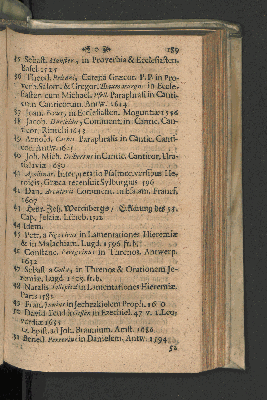 ☙ o ❧ 189
35 Sebast. Munster, in Proverbia & Ecclesiasten.
Basel 1525
36 Theod. Peltani, Catena Græcor. P. P. in Pro-
verb. Salom. & Gregor. Thaumaturgus in Eccle-
siasten cum Michael. Pselli Paraphrasi in Canti-
cum Canticorum. Antw. 1614.
37 Joan. Ferus, in Ecclesiasten. Moguntiæ 1556
38 Jacob. Comment. in Cantic. Can-
ticor. 1613
39 Arnold. Paraphrasis in Cantic. Cantic-
or. Antw. 1605
40 Joh. Mich. in Cantic. Canticor. Ura-
tislaviæ 1680
41 Apollinar. Interpretatio Psalmor. versibus He-
roicis, Græca recensuit Sylburgius 1596
42 Dan. Comment. in Esaiam. Francf.
1607
43 Henr. Joh. Werenbergs, Erklärung des 53.
Cap. Jesaiæ. Lüneb. 1712
44 Idem.
45 Petr. a Figueiro in Lamentationes Hieremiæ
& in Malachiam. Lugd. 1596. fr. b.
46 Constant. Peregrinus in Threnos. Antwerp.
1632
47 Sebast. a in Threnos & Orationem Je-
remiæ. Lugd. fr. b.
48 Natalis in Lamentationes Hieremiæ.
Paris 1582
49 Franc. Junius in Jechezkielem Proph. 1610
50 David in Ezechiel. 47 v. 1. Leu-
verdiæ 1655
Ej. Epist. ad Joh. Braunium. Amst. 1686
51 Bened. Pererius in Danielem. Antw. 1594
52